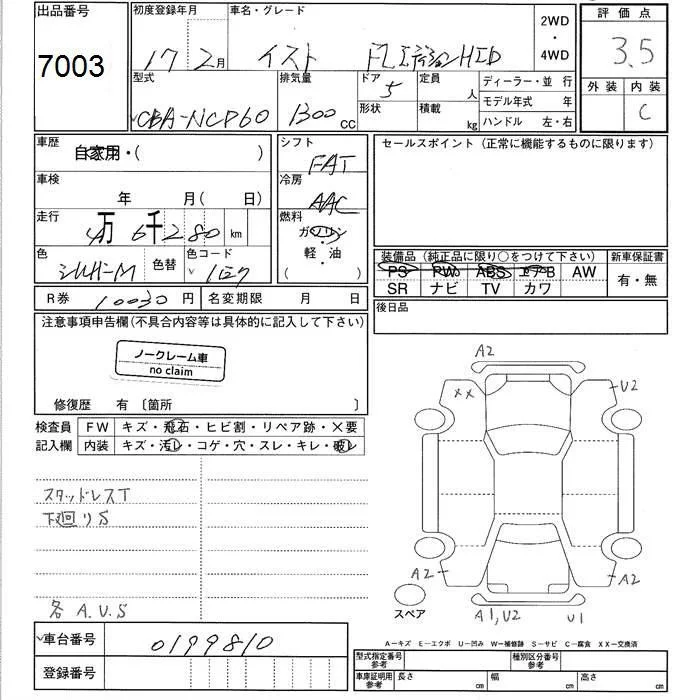 出品番号
7003
初度登録年月
17 2月
車名・グレード
イスト FLエディションHID
2WD
・
4WD
評価点
3.5
外装 内装
C
型式
CBA-NCP60
排気量
1300 cc
ドア
5
形状
定員
人
積載
kg
ディーラー・並行
モデル年式 年
ハンドル 左・右
車歴
自家用・( )
車検
年 月( 日)
走行
4万 6千 280 km
色
シルバーM
色替
色コード
1E7
シフト
FAT
冷房
AAC
燃料
ガソリン
軽・油
( )
セールスポイント(正常に機能するものに限ります)
装備品(純正品に限り○をつけて下さい)
PS PW ABS エアB AW
SR ナビ TV カワ
新車保証書
有・無
R券 10030 円
名変期限 月 日
後日品
注意事項申告欄(不具合内容等は具体的に記入して下さい)
ノークレーム車
no claim
修復歴 有 〔箇所 〕
検査員
記入欄
FW キズ・飛石・ヒビ割・リペア跡・×要
内装 キズ・汚レ・コゲ・穴・スレ・キレ・破レ
スタッドレスT
下廻りS
各A.U.S
A2
XX
U2
A2
A2
スペア
A1,U2
U1
車台番号
0199810
登録番号
A−キズ E−エクボ U−凹み W−補修跡 S−サビ C−腐食 XX−交換済
型式指定番号
参考
種別区分番号
参考
車庫証明用
参考
長さ cm
幅 cm
高さ cm